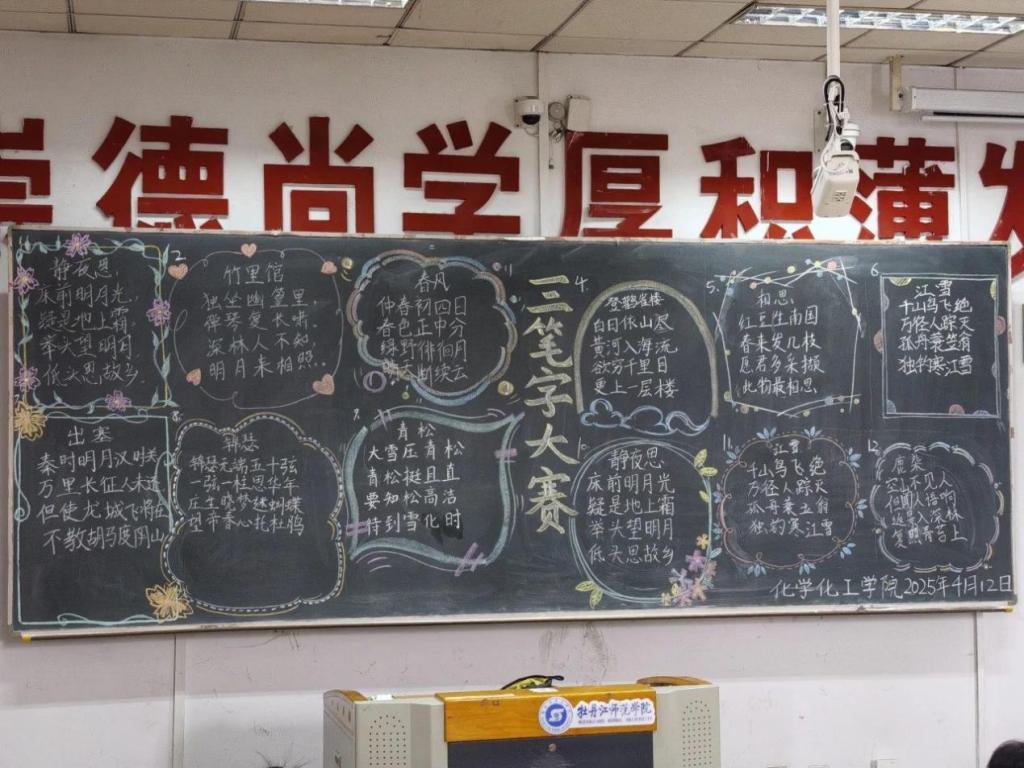 崇德尚学厚积薄发
三笔字大赛
静夜思
床前明月光,
疑是地上霜。
举头望明月,
低头思故乡。
2.
竹里馆
独坐幽篁里,
弹琴复长啸。
深林人不知
明月来相照.
春风
仲春初四日
春色正中分
绿野徘徊月
晴天断续云
4
登鹳雀楼
白日依山尽
黄河入海流
欲穷千里目
更上一层楼
5.
相思
红豆生南国
春来发几枝
愿君多采撷
此物最相思
6
江雪
千山鸟飞绝
万径人踪灭
孤舟蓑笠翁
独钓寒江雪
出塞
秦时明月汉时关
万里长征人未还
但使龙城飞将在
不教胡马度阴山
8.
锦瑟
锦瑟无端五十弦
一弦一柱思华年
庄生晓梦迷蝴蝶
望帝春心托杜鹃
9.
青松
大雪压青松
青松挺且直
要知松高洁
待到雪化时
静夜思
床前明月光
疑是地上霜
举头望明月
低头思故乡
11.
江雪
千山鸟飞绝
万径人踪灭
孤舟蓑立翁
独钓寒江雪
12
鹿柴
空山不见人
但闻人语响
返景入深林
复照青苔上
化学化工学院2025年4月12日
牡丹江师范学院